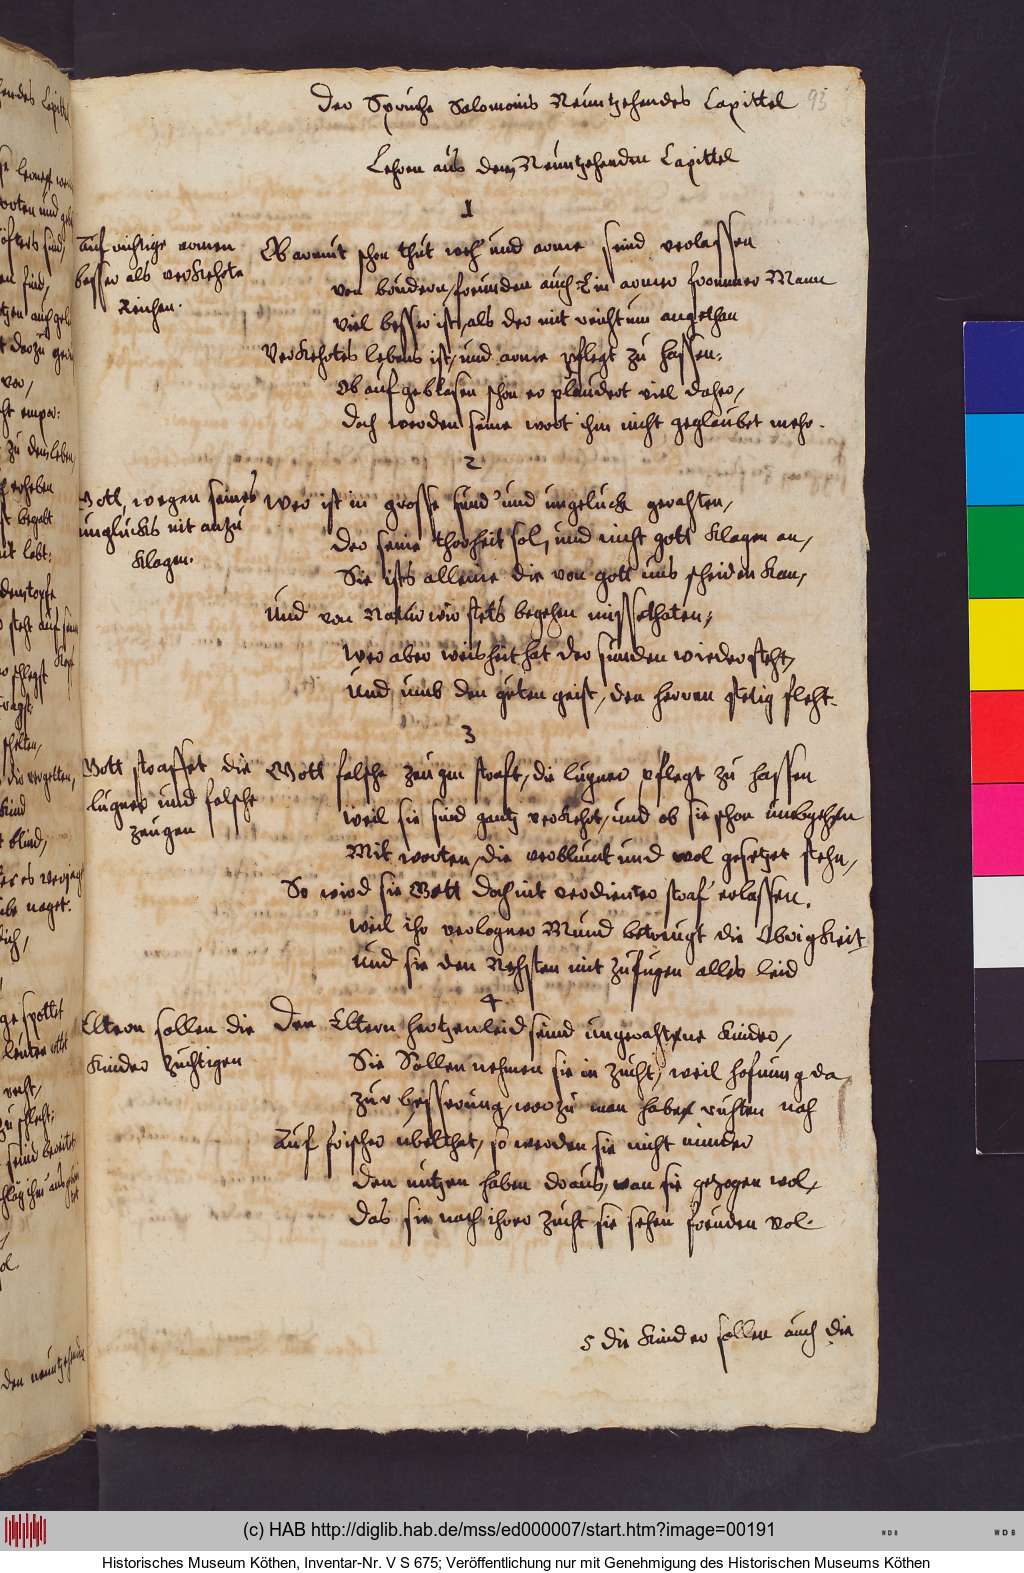 Der Spruche Salomonis Neuntzehendes Capittel 93
Lehren aus dem Neuntzehenden Capittel
1
Aufrichtige armen
besser als verkehrte
Reichen.
Ob armut schon thut weh und arme seind verlassen
von brudern, freunden auch: Ein armer frommer Mann
viel besser ist, als der mit reichtum angethan
Verkehrtes lebens ist, und arme pflegt zu hassen:
Ob aufgeblasen schon er plaudert viel daher,
doch werden seine wort ihm nicht geglaubet mehr.
2
Gott, wegen seines
unglucks nit anzu
klagen.
Wer ist in grosse sund' und ungeluck gerahten,
der seine thorheit sol, und nicht gott klagen an,
Sie ists alleine die von gott uns scheiden kan,
Und von Natur wir stets begehen missethaten;
wer aber weisheit hat der sunden wiedersteht,
und umb den guten geist, den herren stetig fleht.
3
Gott straffet die
lugner und falsche
zeugen
Gott falsche zeugen straft, die lugner pflegt zu hassen
weil sie sind gantz verkehrt, und ob sie schon umbgehen
Mit worten, die verblumt und wol gesetzet stehn,
So wird sie Gott doch nit verdienter straf erlassen.
weil ihr verlogner Mund betreugt die Obrigkeit
und sie den Nehsten mit zufugen alles leid
4
Eltern sollen die
Kinder zuchtigen
Der Eltern hertzenleid seind ungerahtne Kinder,
Sie Sollen nehmen sie in zucht, weil hofnung da
zur besserung, worzu man habe ruhten nah
Auf frischer ubelthat, so werden sie nicht minder
den nutzen haben draus, wan sie getzogen wol,
das sie nach ihrer zucht sie sehen freuden vol.
5 die Kinder sollen auch die
(c) HAB http://diglib.hab.de/mss/ed000007/start.htm?image=00191
WDB
WDB
Historisches Museum Köthen, Inventar-Nr. V S 675; Veröffentlichung nur mit Genehmigung des Historischen Museums Köthen